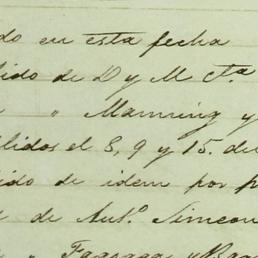 do en esta fecha
dido de D y M Cta
" Manning y
lidos el 8, 9 y 15. de
dido de idem por p
de Anto. Simeon
" Fagoaga y Ba